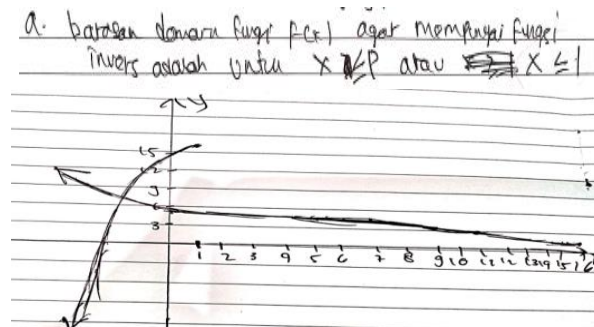 a. batasan domain fungsi F(x) agar mempunyai fungsi
invers adalah untuk x ≤ p atau x ≤ 1
y
15
12
9
6
3
1 2 3 4 5 6 7 8 9 10 11 12 13 14 15 16